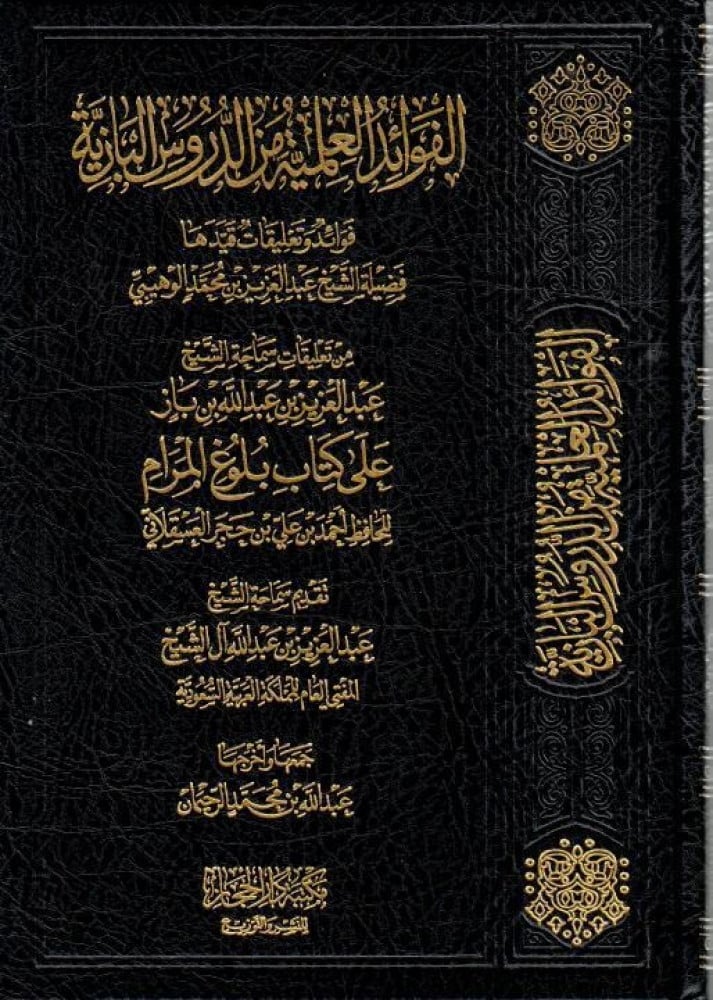 الفَوَائِدُ العِلْمِيَّةُ مِنَ الدُّرُوسِ البَازِيَّةِ
فَوَائِدُ وَتَعْلِيقَاتٌ قَيَّدَهَا
فَضِيلَةُ الشَّيْخِ عَبْدِ العَزِيزِ بْنِ مُحَمَّدٍ الوُهَيْبِيِّ
مِنْ تَعْلِيقَاتِ سَمَاحَةِ الشَّيْخِ
عَبْدِ العَزِيزِ بْنِ عَبْدِ اللَّهِ بْنِ بَازٍ
عَلَى كِتَابِ بُلُوغِ المَرَامِ
لِلْحَافِظِ أَحْمَدَ بْنِ عَلِيِّ بْنِ حَجَرٍ العَسْقَلَانِيِّ
تَقْدِيمُ سَمَاحَةِ الشَّيْخِ
عَبْدِ العَزِيزِ بْنِ عَبْدِ اللَّهِ آلِ الشَّيْخِ
المُفْتِي العَامِّ لِلْمَمْلَكَةِ العَرَبِيَّةِ السُّعُودِيَّةِ
جَمَعَهَا وَأَخْرَجَهَا
عَبْدُ اللَّهِ بْنُ مُحَمَّدٍ
مَكْتَبَةُ دَارِ الحِجَازِ
لِلنَّشْرِ وَالتَّوْزِيعِ
الفَوَائِدُ العِلْمِيَّةُ مِنَ الدُّرُوسِ البَازِيَّةِ